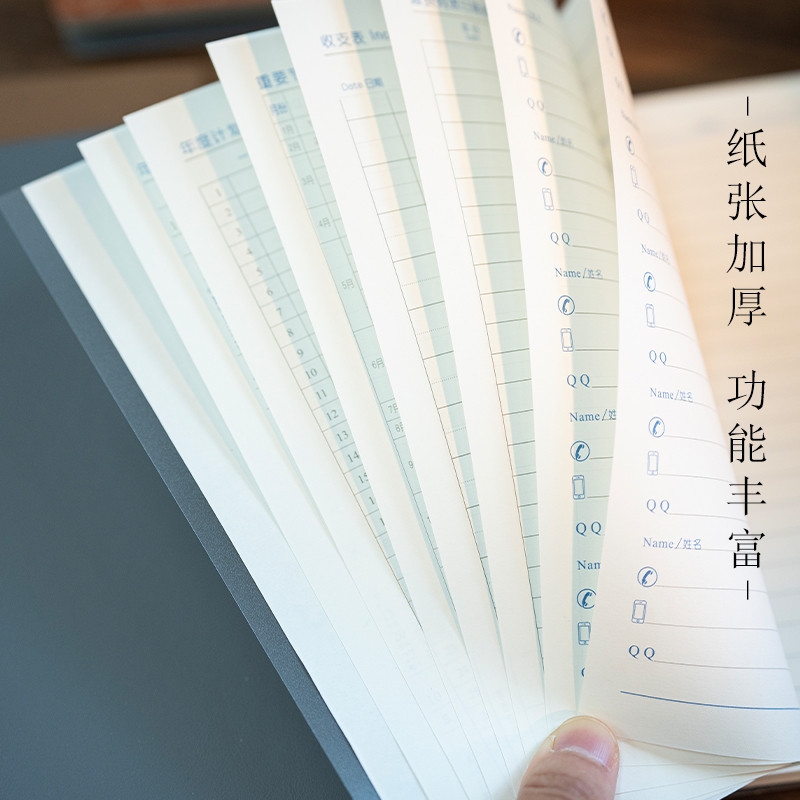 纸张加厚 功能丰富
年度计
1
2
3
4
5
6
7
8
9
10
11
12
13
14
重要
1月
2月
3月
4月
5月
6月
7月
8
9
收支表
Date 日期
QQ
Name/姓名
QQ
Name/姓名
QQ
Name/姓
QQ
Nam
QQ
Name/姓名
QQ
Name/姓名
QQ
Name/姓名
QQ